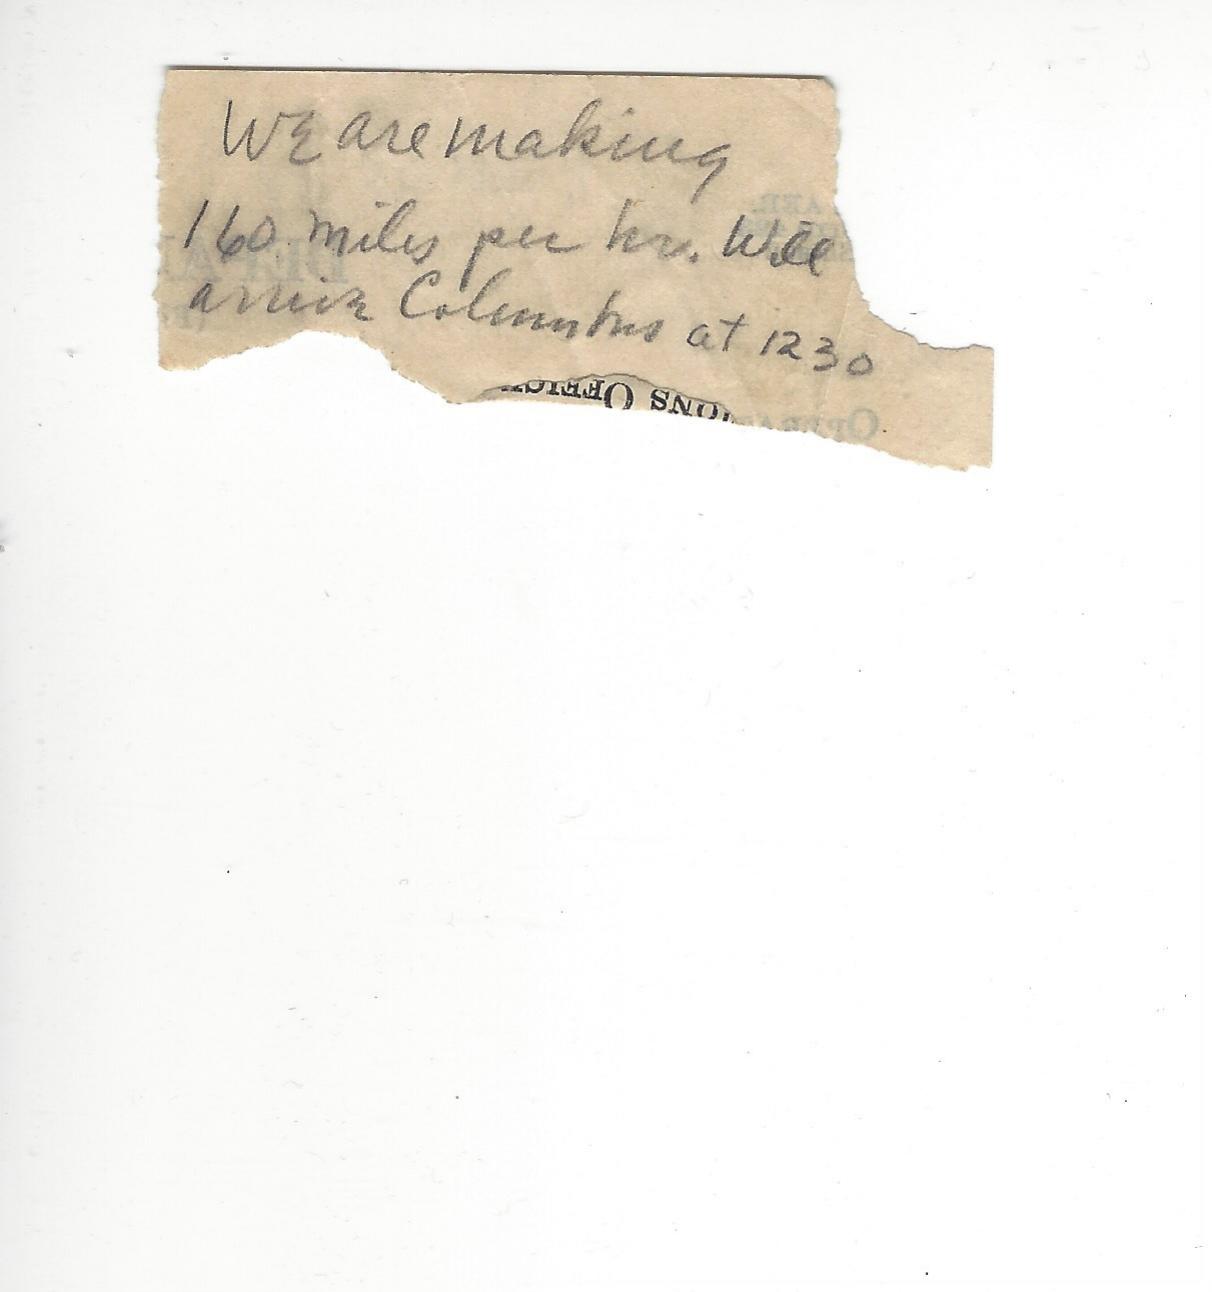 We are making
160 miles per hr. Will
arrive Columbus at 1230
IONS OFFIC